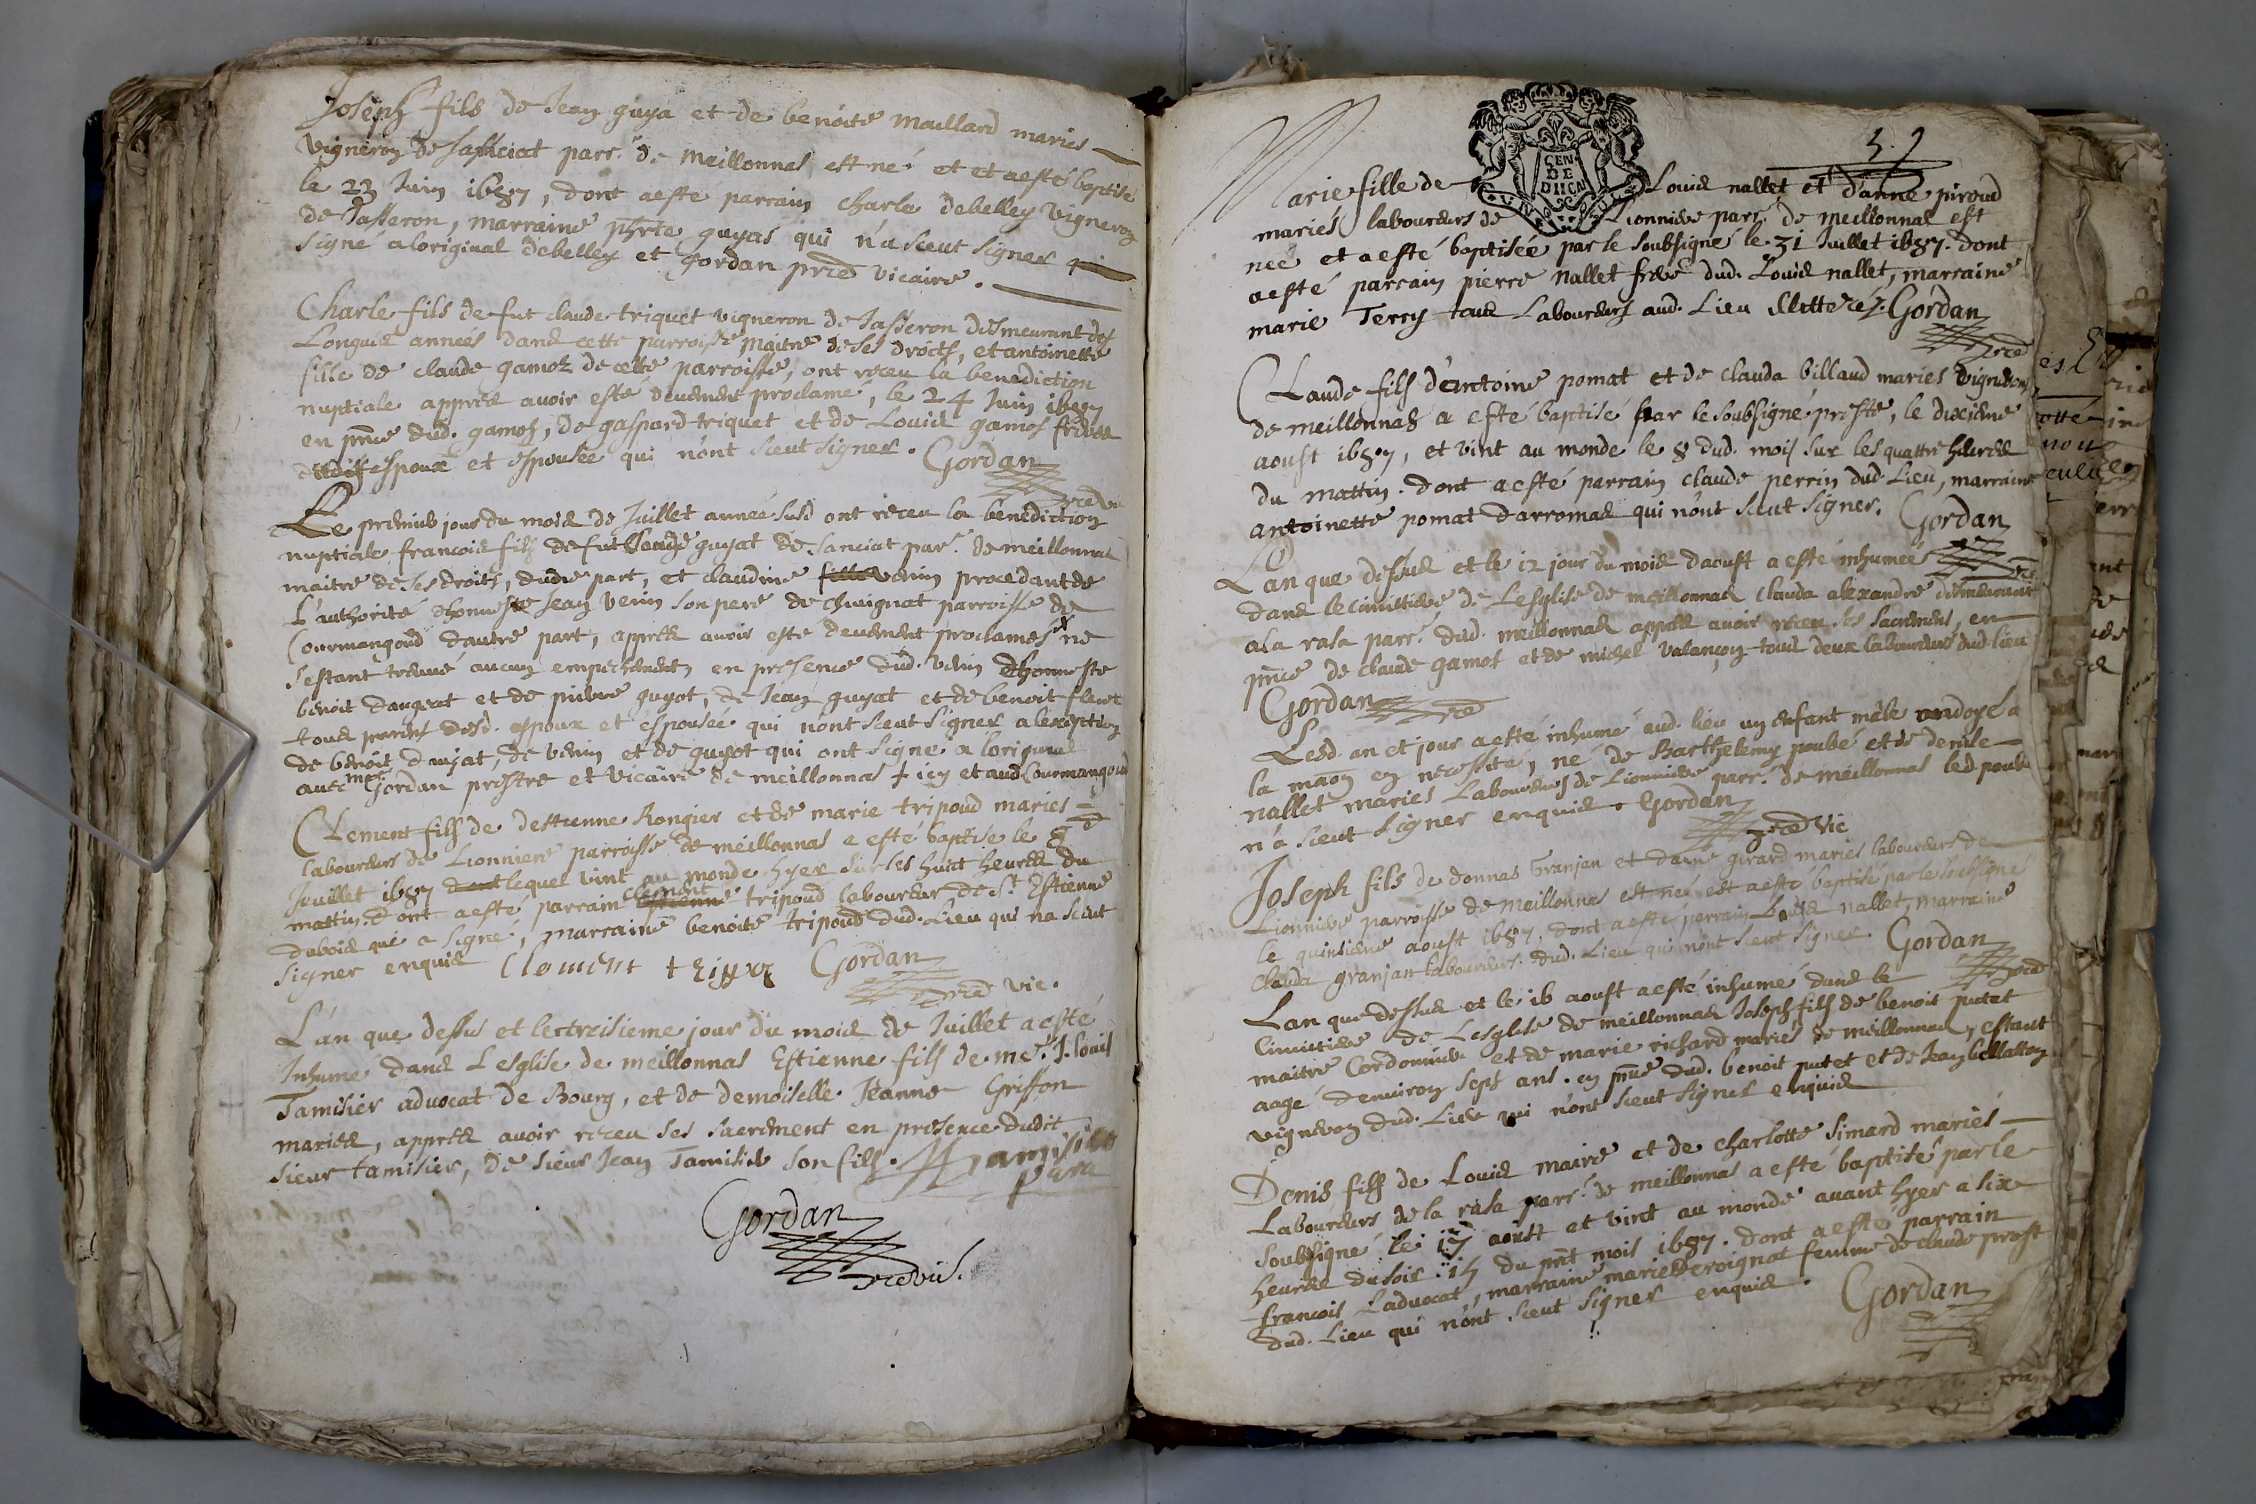 Joseph fils de Jean guya et de benoite Maillard maries
vigneron de Sanciat parr. de Meillonnas est né et et a esté baptisé
le 23 Juin 1687, dont a esté parrain charle debelley vigneron
de Jasseron, marraine guyas qui n'a sceut signer
signe a loriginal debelley et Gordan pre vicaire.
Charle fils de fut claude triquet vigneron de Jasseron demeurant des
Longues années dans cette parroisse maitre de ses droits, et antoinette
fille de claude gamoz de cette parroisse, ont receu la benediction
nuptiale apprés avoir esté deuement proclamé, le 24 Juin 1687
en pnce dud. gamos, de gaspard triquet et de Louis gamos freres
desdit espoux et espousée qui n'ont sceut signer. Gordan
pre vic
Le premier jour du mois de Juillet année susd ont receu la benediction
nuptiale francois fils de fut Claude guyat de Sanciat parr. de meillonnas
maitre de ses droits, d'une part, et claudine fille verin procedant de
L'authorité d'honneste Jean verin son pere de chuignat parroisse de
Courmangoud d'autre part, apprés avoir esté deuement proclamés + ne
s'estant treuvé aucun empechement, en presence dud. verin d'honneste
benoit daujat et de pierre guyot, de Jean guyat et de benoit
tous parens desd. espoux et espousée qui n'ont sceut signer a lexeption
de benoit daujat, de verin et de guyot qui ont signe a l'original
avec moy Gordan prestre et vicaire de meillonnas + icy et aud Courmangoud
Clement fils de destienne Rongier et de marie tripoud maries
laboureurs de Lionniere parroisse de meillonnas a esté baptise le 8
Jeuillet 1687 dont lequel vint au monde hyer sur les huict heures du
mattin. dont a esté parrain Estienne clement tripoud laboureur de St Estienne
dubois qui a signe, marraine benoite tripoud dud. Lieu qui na sceut
signer enquis Clement Gordan
pre vic.
L'an que dessus et le treisieme jour du mois de Juillet a esté
Inhume dans L'esglise de meillonnas Estienne fils de me. J. Louis
Tamisier advocat de Bourg, et de demoiselle Jeanne Griffon
mariés, apprés avoir receu ses sacrement en presence dudit
sieur tamisier, de sieur Jean Tamisier son fils. Tamisier
pere
Gordan
pre vic.
5.9
GEN
DE
DIION
Marie fille de Louis nallet et d'anne piroud
mariés laboureurs de Lionniere parr. de meillonnas est
née et a esté baptisée par le soubsigné le 31 Juillet 1687. dont
a esté parrain pierre nallet frere dud. Louis nallet, marraine
marie Terry tous Laboureurs aud. Lieu illetterés. Gordan
pre
Claude fils d'antoine pomat et de clauda billaud maries vignerons
de meillonnas a esté baptisé par le soubsigné prestre, le dixieme
aoust 1687, et vint au monde le 8 dud. mois sur les quattre heures
du mattin. dont a esté parrain claude perrin dud Lieu, marraine
antoinette pomat darromas qui n'ont sceut signer. Gordan
pre
L'an que dessus et le 12 jour du mois daoust a esté inhumée
dans le cimittiere de Lesglise de meillonnas clauda alexandre demeurant
a La rasa parr. dud. meillonnas apprés avoir receu ses sacremens, en
pnce de claude gamos et de michel valançon tous deux laboureurs dud lieu
Gordan
pre
Lesd. an et jour a esté inhumé aud. lieu un enfant mâle ondoyé a
la maon en necessité, né de Barthelemy poubé et de denise
nallet maries Laboureurs de Lionniere parr. de meillonnas led poubé
n'a sceut signer enquis. Gordan
pre Vic
Joseph fils de donnas Granjan et danne girard maries laboureurs de
Lionniere parroisse de meillonnas est né et a esté baptisé par le soubsigné
le quinsieme aoust 1687. dont a esté parrain Louis nallet, marraine
clauda granjan laboureurs dud. Lieu qui n'ont sceut signer. Gordan
pre
Lan que dessus et le 16 aoust a esté inhumé dans le
Cimittiere de Lesglise de meillonnas Joseph fils de benoit putet
maitre Cordonnier et de marie richard mariés de meillonnas, estant
aagé denuiron sept ans. en pnce dud. benoit putet et de Jean bellatton
vigneron dud. Lieu qui n'ont sceut signer enquis
Denis fils de Louis maire et de charlotte simard mariés
Laboureurs de la rasa parr. de meillonnas a esté baptisé par le
soubsigné le 17 aoust et vint au monde avant hyer a six
heures du soir. 15 du pnt mois 1687. dont a esté parrain
francois Ladvocat, marraine marie Deroignat femme de claude prost
dud. Lieu qui n'ont sceut signer enquis. Gordan